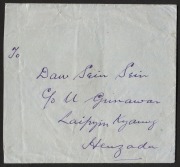 To
Daw Sein Sein
C/o U Gunawar
Laipyin Kyaung
Henzada